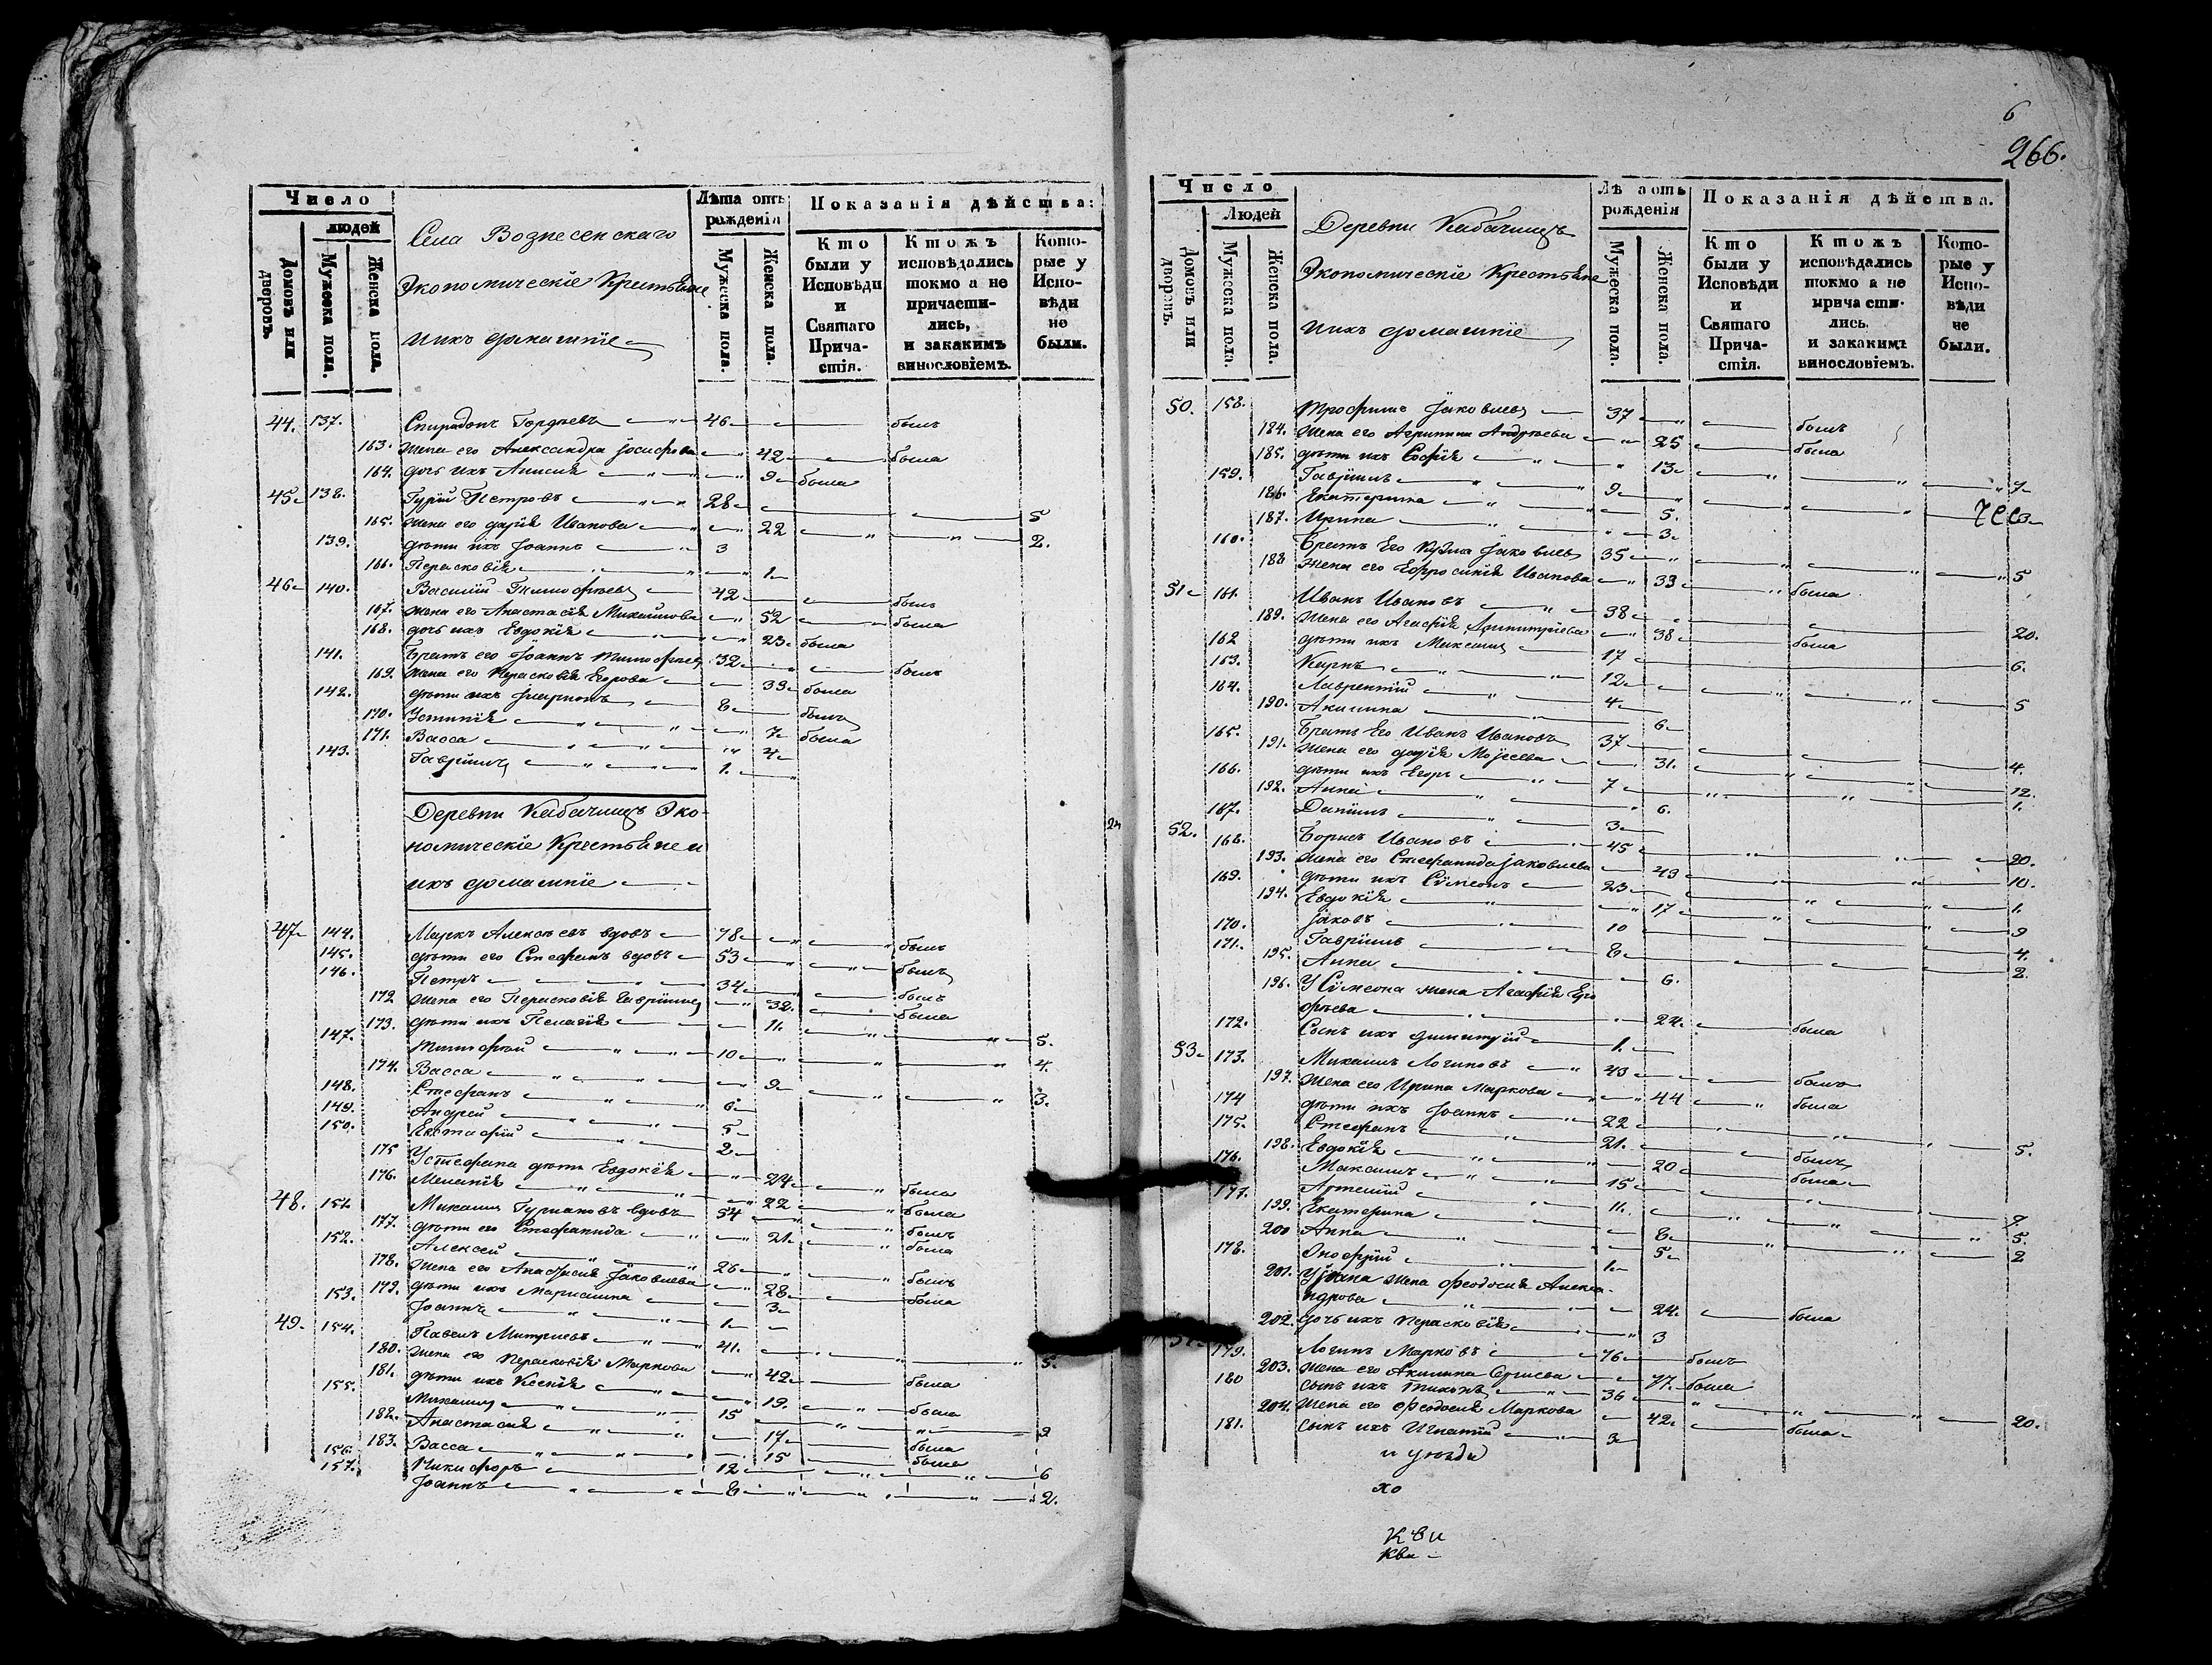 Число
людей
Домовъ или дворовъ.
Мужеска пола.
Женска пола.
Села Вознесенскаго
Экономическіе Крестьяне
и ихъ домашніе
Лѣта отъ рожденія
Мужеска пола.
Женска пола.
Показанія дѣйства:
Кто были у Исповѣди и Святаго Причастія.
Ктожъ исповѣдались токмо а не причастились, и закакимъ винословіемъ.
Которые у Исповѣди не были.
44. 137. Спиридонъ Гордѣевъ 46 былъ
163. Жена его Александра Іосифова 42 была
164. дочь ихъ Анисія 9 была
45 138. Гурій Петровъ 28 5
165. Жена его Дарія Иванова 22 2.
139. дѣти ихъ Іоаннъ 3
166. Парасковія 1
46 140. Василій Тимофѣевъ 42 былъ
167. Жена его Анастасія Михайлова 52 была
168. дочь ихъ Евдокія 23 была
141. Братъ его Іоаннъ Тимофѣевъ 32 былъ
169. Жена его Парасковія Егорова 33 была
142. дѣти ихъ 8 былъ
170. Устинія 7 была
171. Васса 4
143. Гавріилъ 1.
Деревни Кабачищъ Эко-
номическіе Крестьяне и
ихъ домашніе
47 144. Маркъ Алексѣевъ вдовъ 78 былъ
145. дѣти его Стефанъ вдовъ 53 былъ
146. Петръ 34 былъ
172 Жена его Парасковія Гавріилова 32. была
173. дѣти ихъ Пелагія 11. 5.
147. Тимофей 10 4.
174. Васса 9 3.
148. Стефанъ 6
149. Андрей 5
150. Евстафій 2
175 У Стефана дѣти Евдокія 24 была
176. Меланія 22 была
48. 151. Михаилъ Гурьяновъ вдовъ 54 былъ
177. дѣти его Стефанида 21. была
152. Алексей 26 былъ
178. Жена его Анастасія Яковлева 28 была
179. дѣти ихъ Маріанна 3
153. Іоаннъ 1.
49. 154. Павелъ Митриевъ 41. 5.
180. Жена его Парасковія Маркова 42 была
181. дѣти ихъ Ксенія 19. была
155. Михаилъ 15 2
182. Анастасія 17 была
183. Васса 15 была
156. Никифоръ 12 6
157. Іоаннъ 8 2.
6
266.
Число
Людей
Домовъ или дворовъ.
Мужеска пола.
Женска пола.
Деревни Кабачищъ
Экономическіе Крестьяне
и ихъ домашніе
Лѣ а отъ рожденія
Мужеска пола.
Женска пола.
Показанія дѣйства.
Кто были у Исповѣди и Святаго Причастія.
Ктожъ исповѣдались токмо а не причастились. и закакимъ винословіемъ.
Которые у Исповѣди не были.
50. 158. Трофимъ Яковлевъ 37 былъ
184. Жена его Агрипина Андреева 25 была
185. дѣти ихъ Софія 13 7
159. Гавріилъ 9 3
186. Екатерина 5.
187. Ирина 3
160. Братъ Его Кузма Яковлевъ 35 5
188 Жена его Ефросинія Иванова 33 была
51 161. Иванъ Ивановъ 38 20.
189. Жена его Агафія Димитріева 38 была
162 дѣти ихъ Максимъ 17 6.
163. Карпъ 12 5
164. Лаврентій 4
190. Акилина 6
165. Братъ Его Иванъ Ивановъ 37 4.
191. Жена его Дарія Моѵсеева 31. 12.
166. дѣти ихъ Егоръ 7 1.
192. Анна 6.
167. Даніилъ 3
52. 168. Борисъ Ивановъ 45 20.
193. Жена его Стефанида Яковлева 49 10.
169. дѣти ихъ Сѵмеонъ 23 1.
194. Евдокія 17 9
170. Іаковъ 10 4.
171. Гавріилъ 8 2.
195. Анна 6.
196. У Сѵмеона жена Агафія Его-
рьева 24. была
172. Сынъ ихъ Димитрій 1.
53 173. Михаилъ Логиновъ 43 былъ
197. Жена его Ирина Маркова 44 была
174 дѣти ихъ Іоаннъ 22 5.
175. Стефанъ 21. былъ
198. Евдокія 20 была
176. Максимъ 15 7.
177. Артемій 11. 5.
199. Екатерина 8 2
200 Анна 5
178. Онофрій 1
201. У Іоанна жена Феодосія Алекса-
ндрова 24. была
202. дочь ихъ Параскевія 3
179. Логинъ Марковъ 76 былъ
203. Жена его Акилина Сергиева 77. была
180 сынъ ихъ Тихонъ 36 20.
204. Жена его Феодосія Маркова 42 была
181. сынъ ихъ Игнатій 3